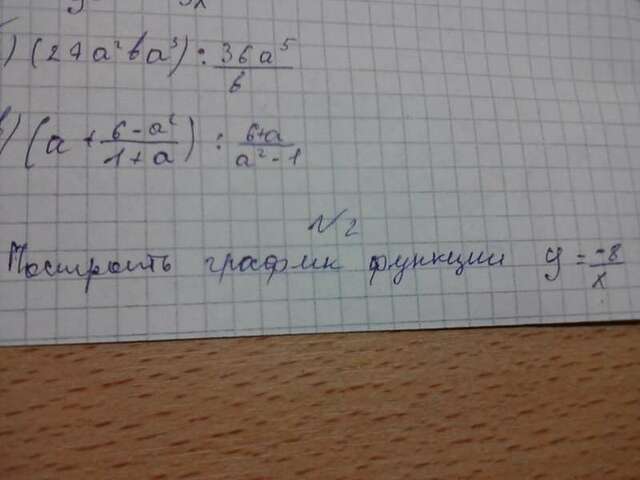 ) (24a²ba³) : 36a⁵/b
) (a + 6-a²/1+a) : 6+a/a²-1
№2
Построить график функции y = -8/x